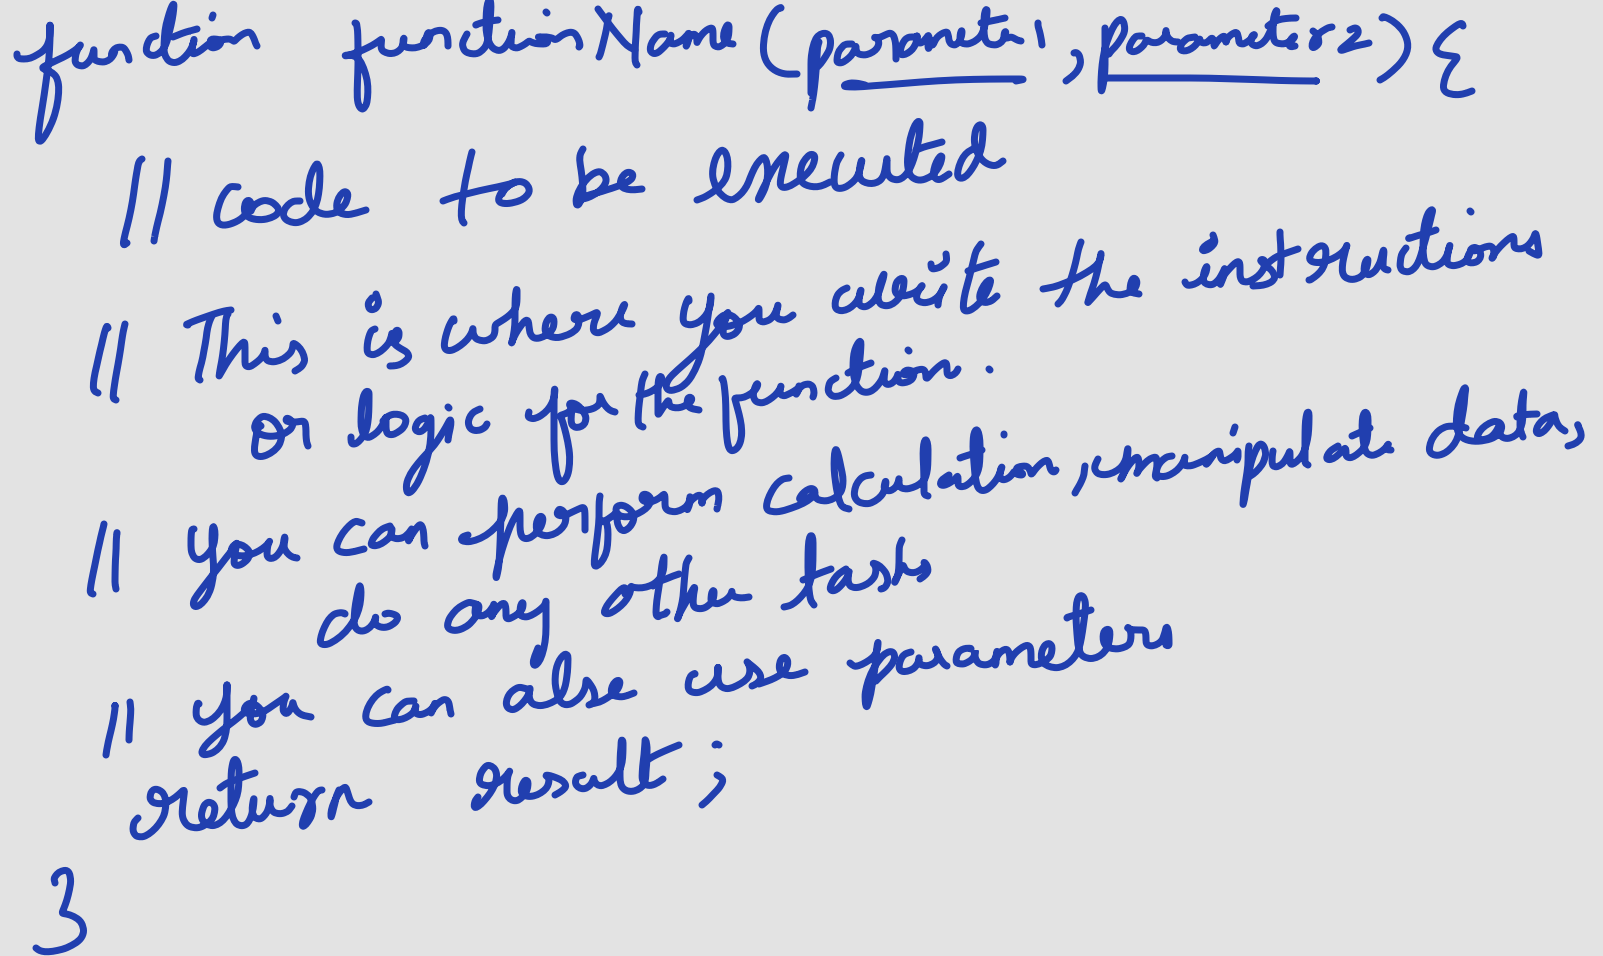 function functionName (parameter1, parameter2) {
// code to be executed
// This is where you write the instructions
or logic for the function.
// you can perform calculation, manipulate data,
do any other tasks
// you can also use parameters
return result;
}